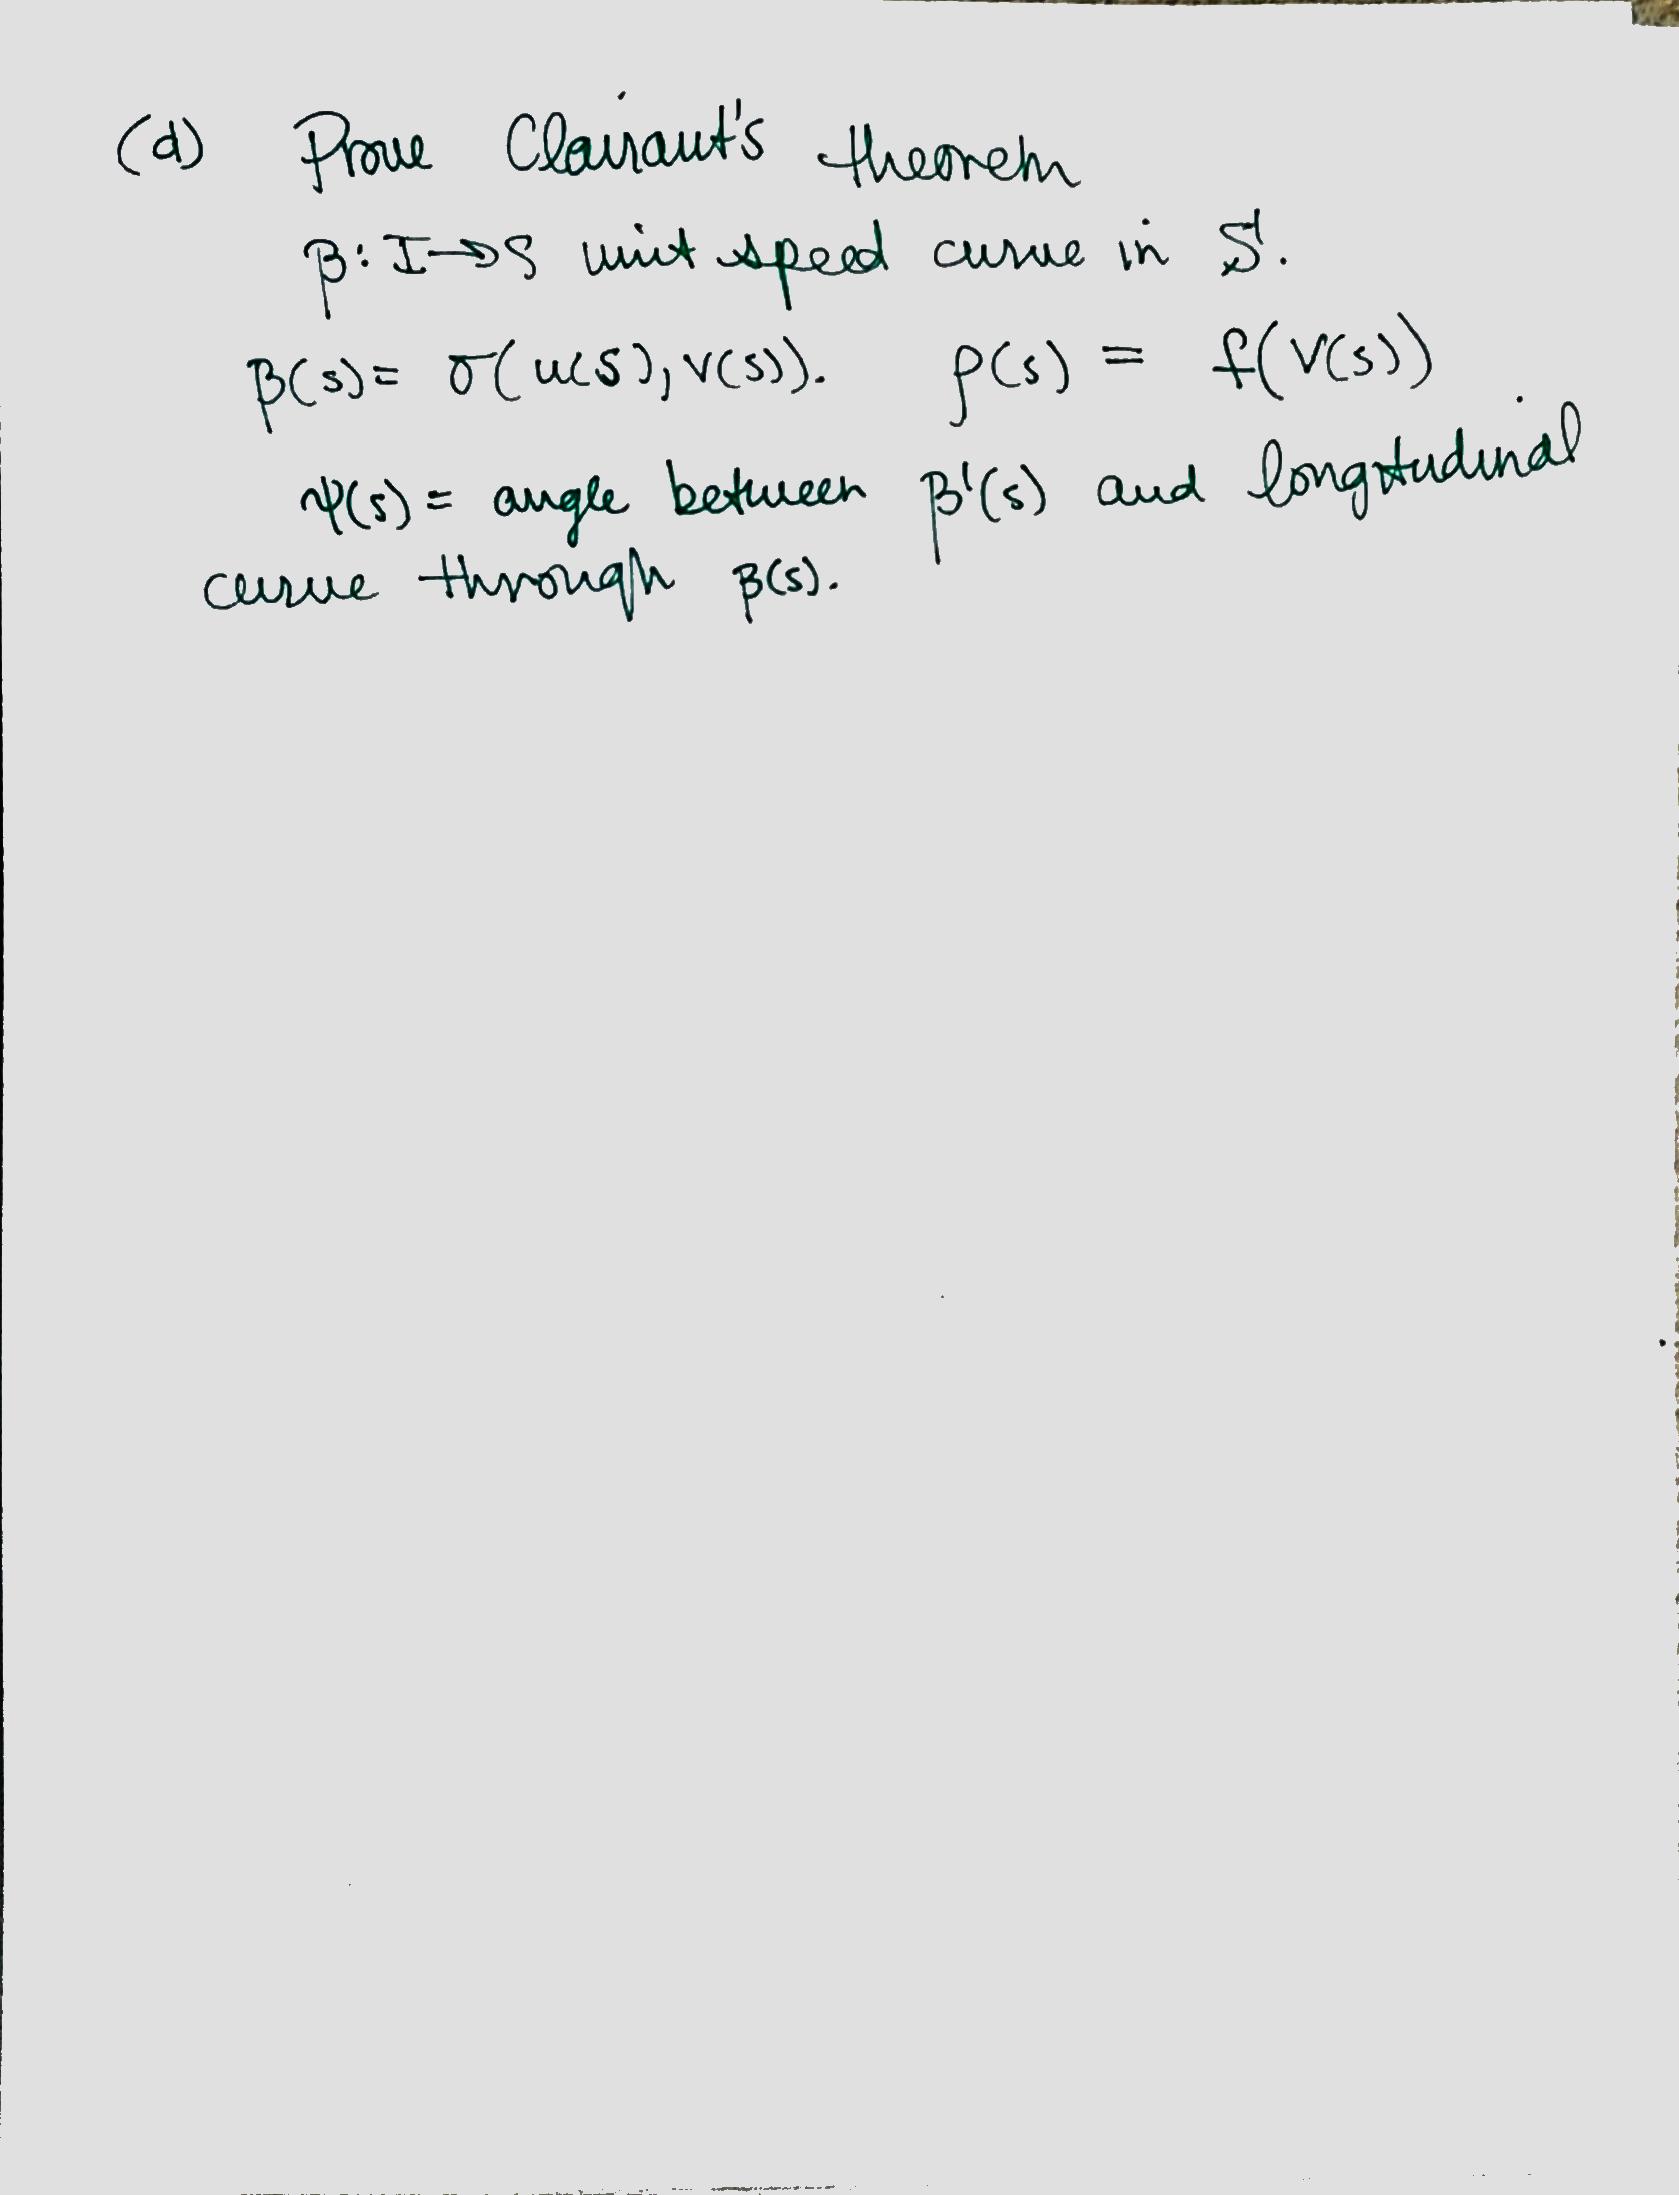 (d) Prove Clairaut's theorem
β: I→S unit speed curve in S.
β(s)= σ(u(s), v(s)). ρ(s) = f(v(s))
ψ(s) = angle between β'(s) and longitudinal
curve through β(s).